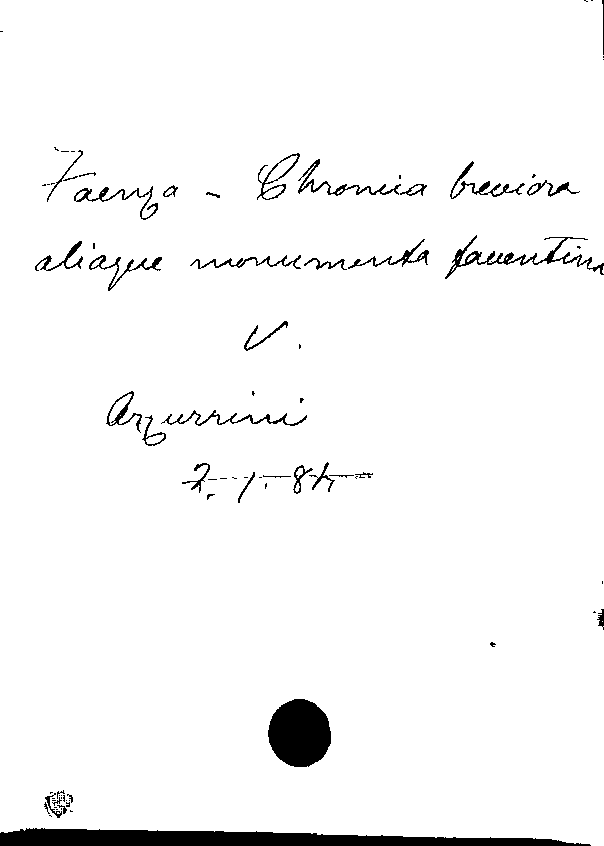 Faenza - Chronica breviora
aliaque monumenta faventina
V.
Azzurrini
7.1.84